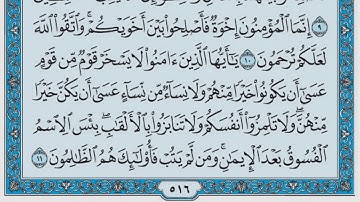 ۝٩ إِنَّمَا ٱلْمُؤْمِنُونَ إِخْوَةٌ فَأَصْلِحُوا۟ بَيْنَ أَخَوَيْكُمْ ۚ وَٱتَّقُوا۟ ٱللَّهَ
لَعَلَّكُمْ تُرْحَمُونَ ۝١٠ يَـٰٓأَيُّهَا ٱلَّذِينَ ءَامَنُوا۟ لَا يَسْخَرْ قَوْمٌ مِّن قَوْمٍ
عَسَىٰٓ أَن يَكُونُوا۟ خَيْرًا مِّنْهُمْ وَلَا نِسَآءٌ مِّن نِّسَآءٍ عَسَىٰٓ أَن يَكُنَّ خَيْرًا
مِّنْهُنَّ ۖ وَلَا تَلْمِزُوٓا۟ أَنفُسَكُمْ وَلَا تَنَابَزُوا۟ بِٱلْأَلْقَـٰبِ ۖ بِئْسَ ٱلِٱسْمُ
ٱلْفُسُوقُ بَعْدَ ٱلْإِيمَـٰنِ ۚ وَمَن لَّمْ يَتُبْ فَأُو۟لَـٰٓئِكَ هُمُ ٱلظَّـٰلِمُونَ ۝١١
٥١٦